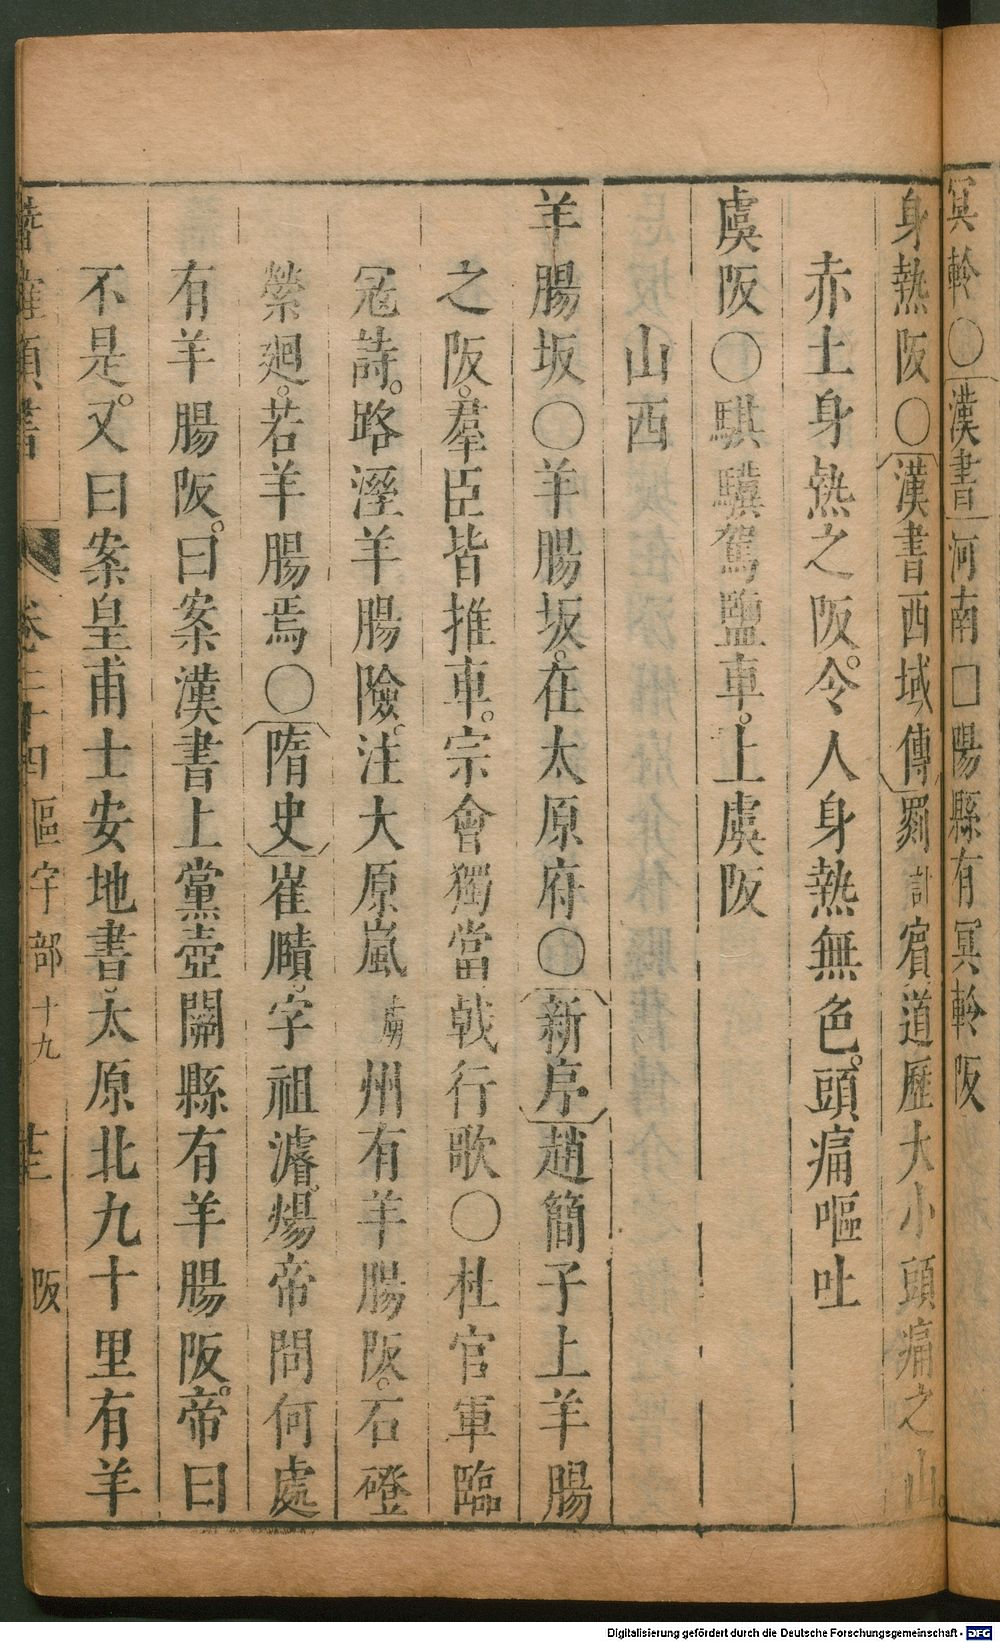 冥軨〇漢書河南□陽縣有冥軨阪
身熱阪〇漢書西域傳罽計賓道歷大小頭痛之山。
赤土身熱之阪。令人身熱無色。頭痛嘔吐
虞阪〇騏驥駕鹽車。上虞阪
山西
羊腸坂〇羊腸坂。在太原府〇新序趙簡子上羊腸
之阪。羣臣皆推車。宗會獨當戟行歌〇杜官軍臨
冦詩。路溼羊腸險。注大原嵐州有羊腸阪。石磴
縈廻。若羊腸焉〇隋史崔賾。字祖濬。煬帝問何處
有羊腸阪。曰案漢書上黨壺關縣有羊腸阪。帝曰
不是。又曰案皇甫士安地書。太原北九十里有羊
潛確類書 卷三十四 區宇部十九 阪
Digitalisierung gefördert durch die Deutsche Forschungsgemeinschaft - DFG